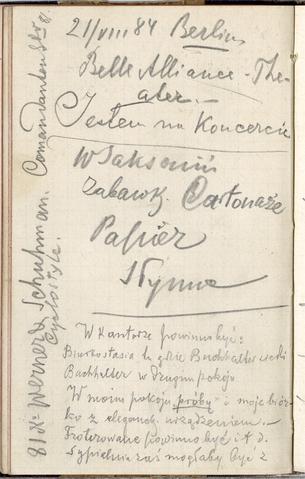 21/VIII 84 Berlin
Belle Alliance-The-
ater.—
Jestem na Koncercie
W Saksonii
zabawk. Cartonaże
Papier
słynne
W Kantorze powinno być:
Buchhalter
Buchhalter w drugim pokoju
W moim pokoju "próby" i moje biór-
ko z eleganck. urządzeniem.—
Froterowane powinno być i t. d.
Sypialnia zaś mogłaby być z
81 Werner & Schuhman. Comandanten Str
Cyclostyle.